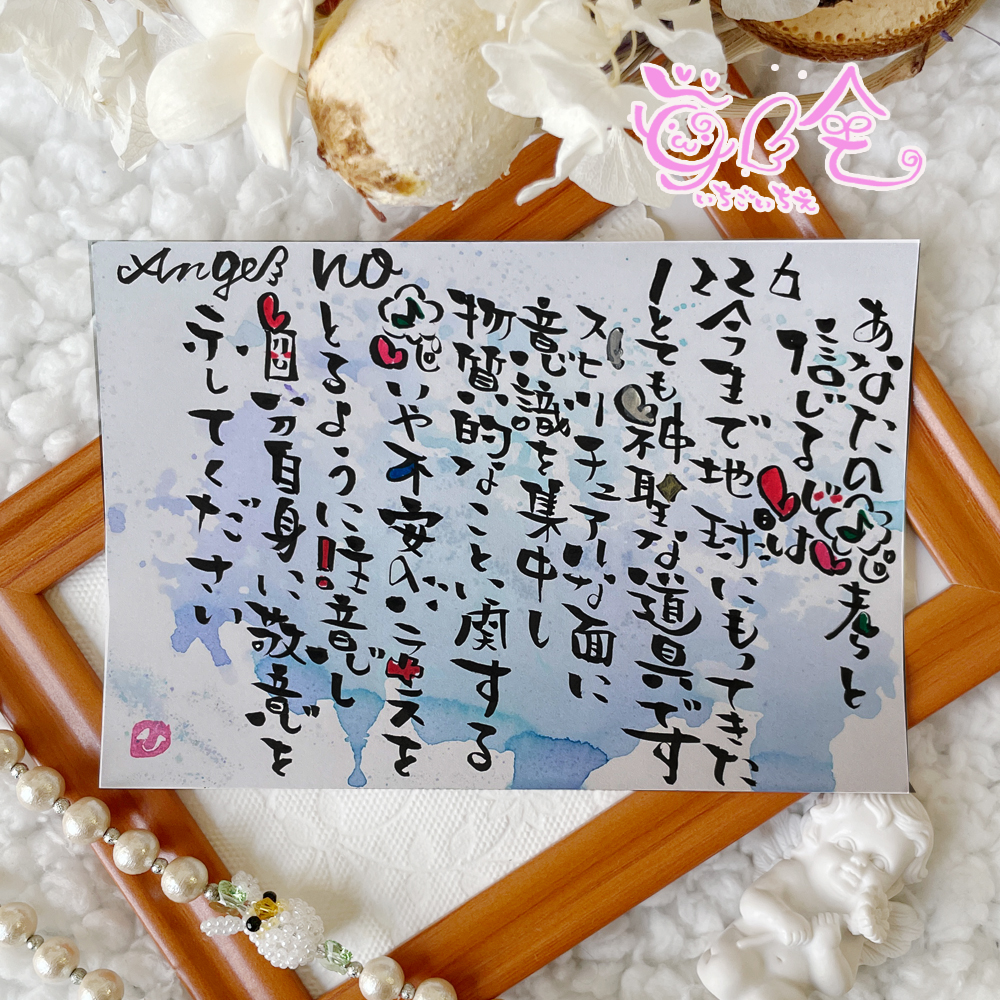 いちごいちえ
Angel no 1226
あなたの思考と
信じる心は
今まで地球にもってきた
とても神聖な道具です
スピリチュアルな面に
意識を集中し
物質的なことに関する
思いや不安のバランスを
とるように注意し
自分自身に敬意を
示してください